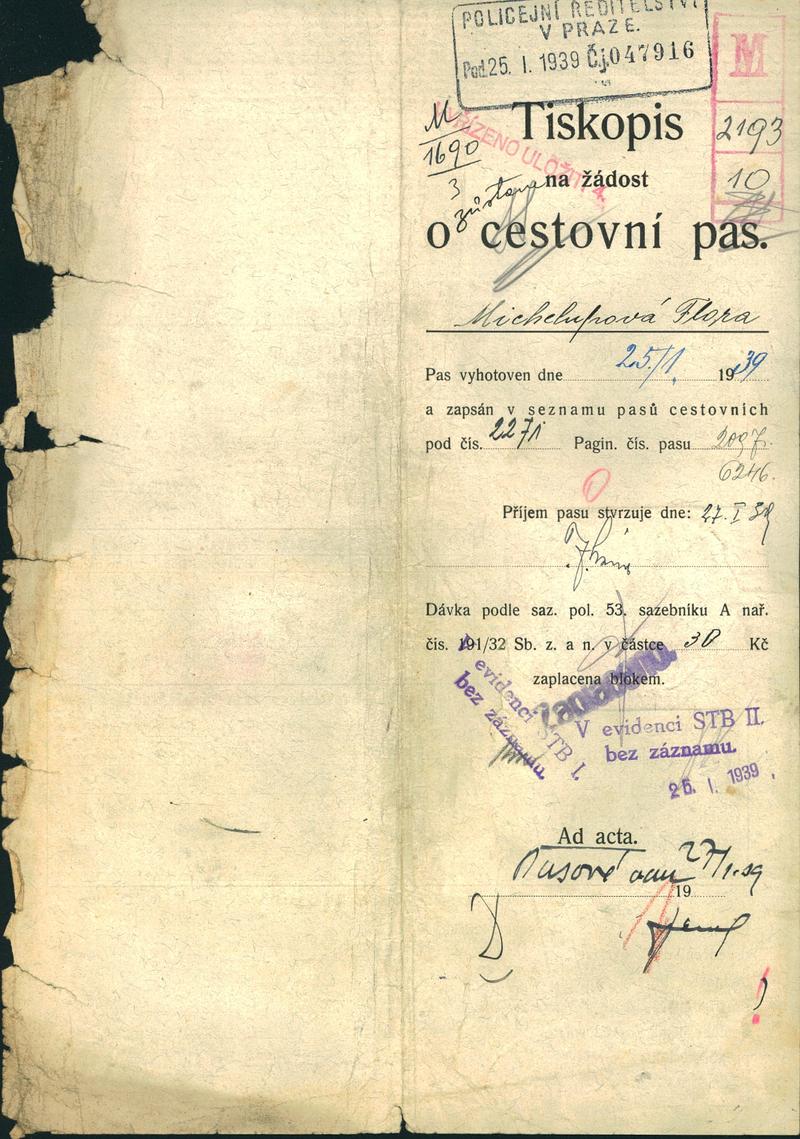 POLICEJNÍ ŘEDITELSTVÍ
V PRAZE.
Pod. 25. I. 1939 Čj. 047916
M
2193
10
M
1690
3
VYŘÍZENO ULOŽIT
Tiskopis
na žádost
o cestovní pas.
Michelupová Flora
Pas vyhotoven dne 25/1. 1939
a zapsán v seznamu pasů cestovních
pod čís. 2271 Pagin. čís. pasu 2097.
6246.
Příjem pasu stvrzuje dne: 27. I 39
Dávka podle saz. pol. 53. sazebníku A nař.
čís. 191/32 Sb. z. a n. v částce 30 Kč
zaplacena blokem.
Zaplaceno.
V evidenci STB I.
bez záznamu.
V evidenci STB II.
bez záznamu.
25. I. 1939
Ad acta.
27/1.39
19
D
!